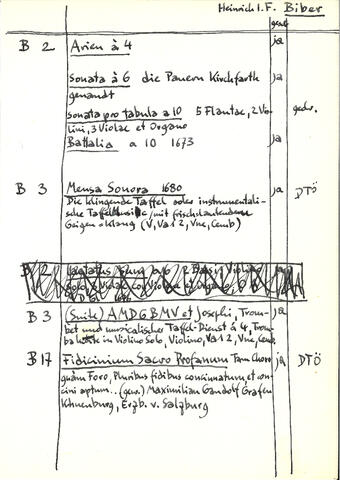 Heinrich I. F. Biber
B 2 Arien à 4 ja
Sonata à 6 die Pauern Kirchfarth ja
genandt
Sonata pro tabula a 10 5 Flautae, 2 Vio- gedr.
lini, 3 Violae et Organo
Battalia a 10 1673 ja
B 3 Mensa Sonora 1680 ja DTÖ
Die klingende Taffel oder instrumentali-
sche Taffelmusic/mit frischlautendem
Geigen oklang (V, Va 1 2, Vne, Cemb)
B 2
B 3 (Suite) AMDGBMV et Josephi, Trom- ja
bet und musicalischer Taffel-Dienst à 4, Trom-
in Violino Solo, Violino, Va 1 2, Vne, Cemb
B 17 Fidicinium Sacro Profanum Tam Choro ja DTÖ
quam Foro, Pluribus fidibus concinnatum et con
cini aptum... (gew.) Maximilian Gandolf Grafen
Khuenburg, Erzb. v. Salzburg